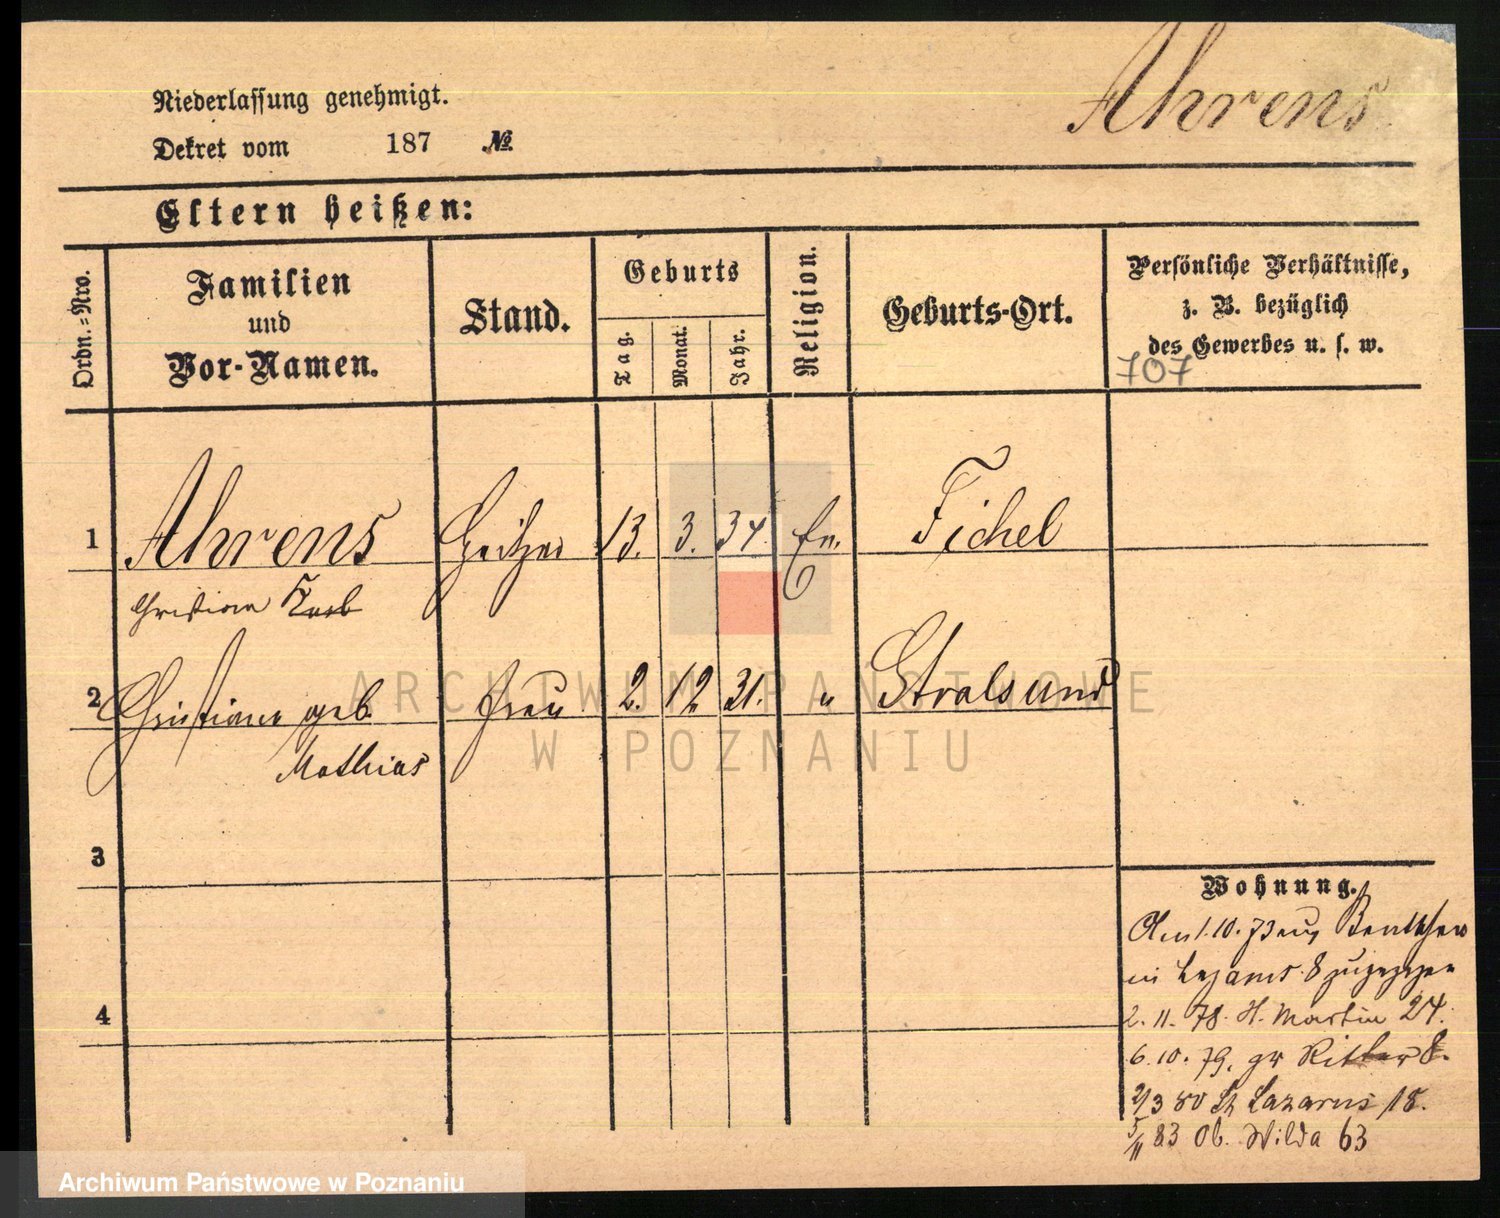 Ahrens
Niederlassung genehmigt.
Dekret vom 187 №
Eltern heißen:
Ordn.=Nro.
Familien
und
Vor-Namen.
Stand.
Geburts
Tag.
Monat.
Jahr.
Religion.
Geburts-Ort.
Persönliche Verhältnisse,
z. B. bezüglich
des Gewerbes u. s. w.
707
1 Ahrens Heitzer 13. 3. 34. Ev. Fichel
Christian Karb
2 Christiane geb. Frau 2. 12 31. " Stralsund
Mathias
3
4
Wohnung.
Am 1.10.73 aus
in Lazarus 8 zugezogen
2. 11. 78. H. Martin 24.
6. 10. 79. gr Ritter 8.
2/3 80 St Lazarus 18.
5/11 83 Ob. Wilda 63
ARCHIWUM PAŃSTWOWE
W POZNANIU
Archiwum Państwowe w Poznaniu